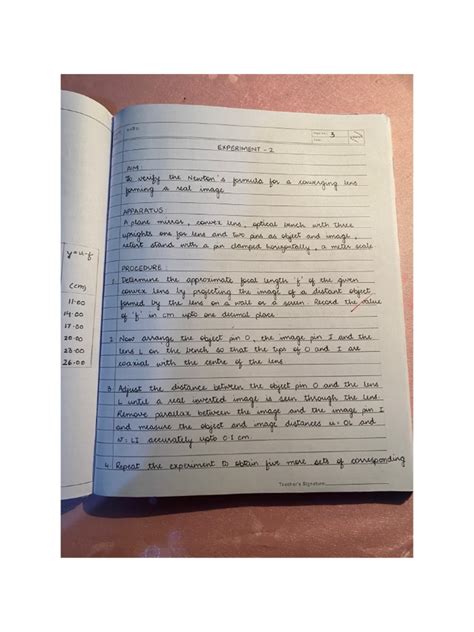 y = u-f
(cm)
11.00
14.00
17.50
20.00
23.00
26.00
Page No. 3
Date
EXPERIMENT - 2
AIM:
To verify the Newton's formula for a converging lens
forming a real image
APPARATUS
A plane mirror, convex lens, optical bench with three
uprights one for lens and two pins as object and image,
retort stand with a pin clamped horizontally, a meter scale
PROCEDURE
1. Determine the approximate focal length 'f' of the given
convex lens by projecting the image of a distant object
formed by the lens on a wall or a screen. Record the value
of 'f' in cm upto one decimal place
2. Now arrange the object pin O, the image pin I and the
lens L on the bench so that the tips of O and I are
coaxial with the centre of the lens
3. Adjust the distance between the object pin O and the lens
L until a real inverted image is seen through the lens.
Remove parallax between the image and the image pin I
and measure the object and image distances u = OL and
v = LI accurately upto 0.1 cm
4. Repeat the experiment to obtain five more sets of corresponding
Teacher's Signature